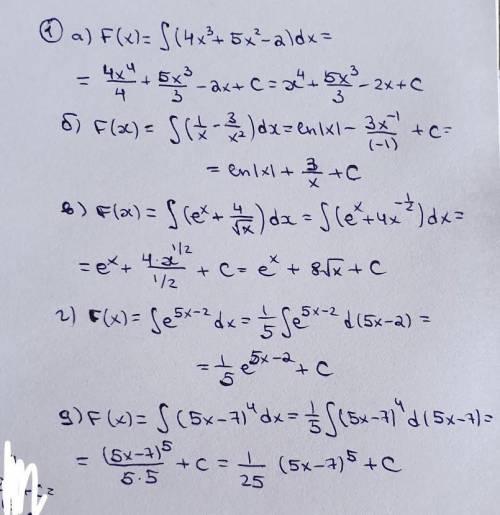 ① а) F(x) = ∫(4x³ + 5x² - 2)dx =
= 4x⁴/4 + 5x³/3 - 2x + C = x⁴ + 5x³/3 - 2x + C
б) F(x) = ∫(1/x - 3/x²)dx = ln|x| - 3x⁻¹/(-1) + C =
= ln|x| + 3/x + C
в) F(x) = ∫(eˣ + 4/√x)dx = ∫(eˣ + 4x^(-1/2))dx =
= eˣ + 4·x^(1/2)/(1/2) + C = eˣ + 8√x + C
г) F(x) = ∫e^(5x-2) dx = 1/5 ∫e^(5x-2) d(5x-2) =
= 1/5 e^(5x-2) + C
д) F(x) = ∫(5x-7)⁴dx = 1/5 ∫(5x-7)⁴ d(5x-7) =
= (5x-7)⁵/5·5 + C = 1/25 (5x-7)⁵ + C